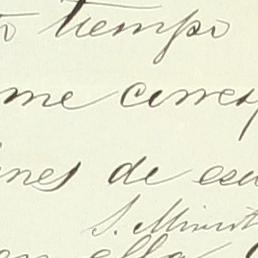 tiempo
me corres
ines de es
S. Minist
en ella